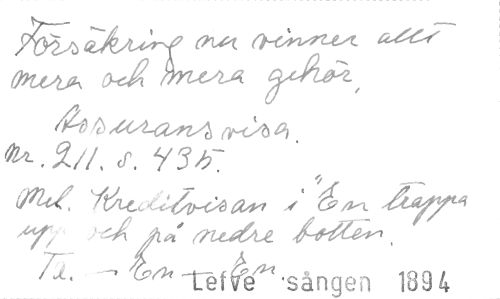 Försäkring nu vinner allt
mera och mera gehör,
Assuransvisa.
Nr. 211. s. 435.
Mel. Kreditvisan i "En trappa
upp och på nedre botten.
Ta. — En — En.
Lefve sången 1894